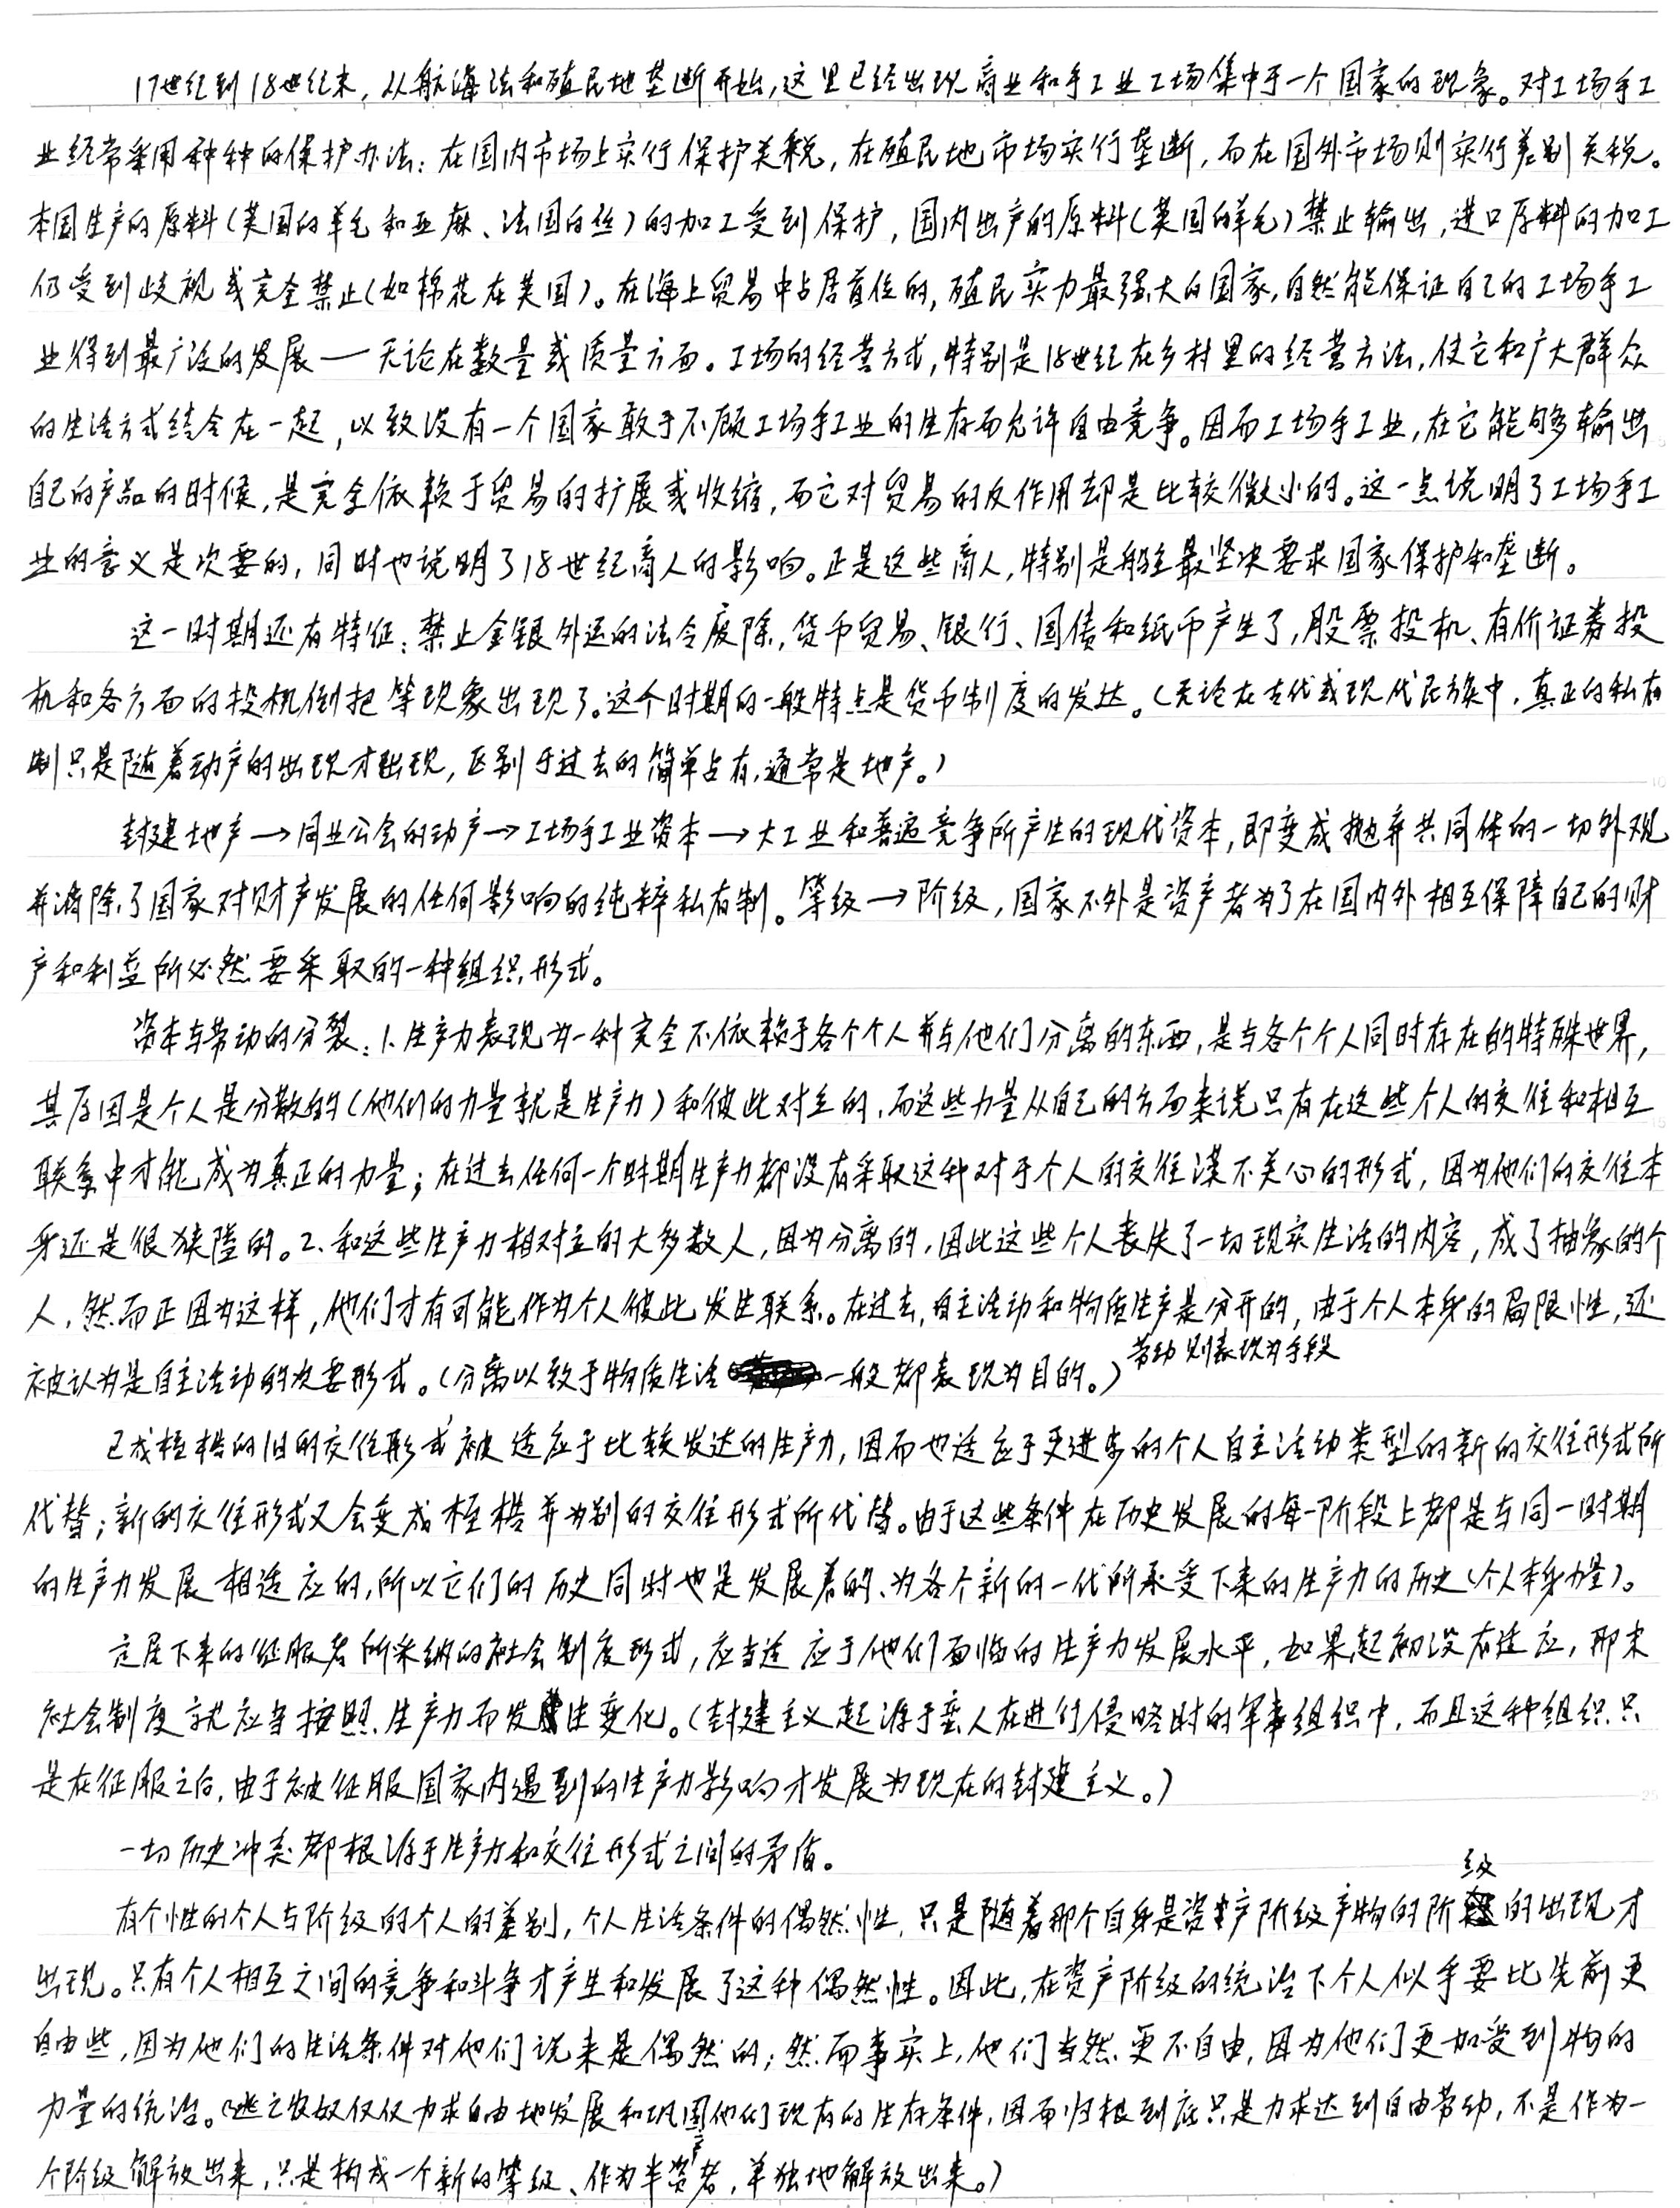 17世纪到18世纪末，从航海法和殖民地垄断开始，这里已经出现商业和手工业工场集中于一个国家的现象。对工场手工
业经常采用种种的保护办法：在国内市场上实行保护关税，在殖民地市场实行垄断，而在国外市场则实行差别关税。
本国生产的原料（英国的羊毛和亚麻、法国的丝）的加工受到保护，国内出产的原料（英国的羊毛）禁止输出，进口原料的加工
仍受到歧视或完全禁止（如棉花在英国）。在海上贸易中占居首位的，殖民实力最强大的国家，自然能保证自己的工场手工
业得到最广泛的发展——无论在数量或质量方面。工场的经营方式，特别是18世纪在乡村里的经营方法，使它和广大群众
的生活方式结合在一起，以致没有一个国家敢于不顾工场手工业的生存而允许自由竞争。因而工场手工业，在它能够输出
自己的产品的时候，是完全依赖于贸易的扩展或收缩，而它对贸易的反作用却是比较微小的。这一点说明了工场手工
业的意义是次要的，同时也说明了18世纪商人的影响。正是这些商人，特别是船主最坚决要求国家保护和垄断。
这一时期还有特征：禁止金银外运的法令废除，货币贸易、银行、国债和纸币产生了，股票投机、有价证券投
机和各方面的投机倒把等现象出现了。这个时期的一般特点是货币制度的发达。（无论在古代或现代民族中，真正的私有
制只是随着动产的出现才出现，区别于过去的简单占有，通常是地产。）
封建地产→同业公会的动产→工场手工业资本→大工业和普遍竞争所产生的现代资本，即变成抛弃共同体的一切外观
并消除了国家对财产发展的任何影响的纯粹私有制。等级→阶级，国家不外是资产者为了在国内外相互保障自己的财
产和利益所必然要采取的一种组织形式。
资本与劳动的分裂：1.生产力表现为一种完全不依赖于各个个人并与他们分离的东西，是与各个个人同时存在的特殊世界，
其原因是个人是分散的（他们的力量就是生产力）和彼此对立的，而这些力量从自己的方面来说只有在这些个人的交往和相互
联系中才能成为真正的力量；在过去任何一个时期生产力都没有采取这种对于个人的交往漠不关心的形式，因为他们的交往本
身还是很狭隘的。2.和这些生产力相对立的大多数人，因为分离的，因此这些个人丧失了一切现实生活的内容，成了抽象的个
人，然而正因为这样，他们才有可能作为个人彼此发生联系。在过去，自主活动和物质生产是分开的，由于个人本身的局限性，还
被认为是自主活动的次要形式。（分离以致于物质生活一般都表现为目的。）劳动则表现为手段
已成桎梏的旧的交往形式被适应于比较发达的生产力，因而也适应于更进步的个人自主活动类型的新的交往形式所
代替；新的交往形式又会变成桎梏并为别的交往形式所代替。由于这些条件在历史发展的每一阶段上都是与同一时期
的生产力发展相适应的，所以它们的历史同时也是发展着的、为各个新的一代所承受下来的生产力的历史（个人本身力量）。
定居下来的征服者所采纳的社会制度形式，应当适应于他们面临的生产力发展水平，如果起初没有适应，那末
社会制度就应当按照生产力而发生变化。（封建主义起源于蛮人在进行侵略时的军事组织中，而且这种组织只
是在征服之后，由于被征服国家内遇到的生产力影响才发展为现在的封建主义。）
一切历史冲突都根源于生产力和交往形式之间的矛盾。
有个性的个人与阶级的个人的差别，个人生活条件的偶然性，只是随着那个自身是资产阶级产物的阶级的出现才
出现。只有个人相互之间的竞争和斗争才产生和发展了这种偶然性。因此，在资产阶级的统治下个人似乎要比先前更
自由些，因为他们的生活条件对他们说来是偶然的；然而事实上，他们当然更不自由，因为他们更加受到物的
力量的统治。（逃亡农奴仅仅力求自由地发展和巩固他们现有的生存条件，因而归根到底只是力求达到自由劳动，不是作为一
个阶级解放出来，只是构成一个新的等级、作为半资产者，单独地解放出来。）